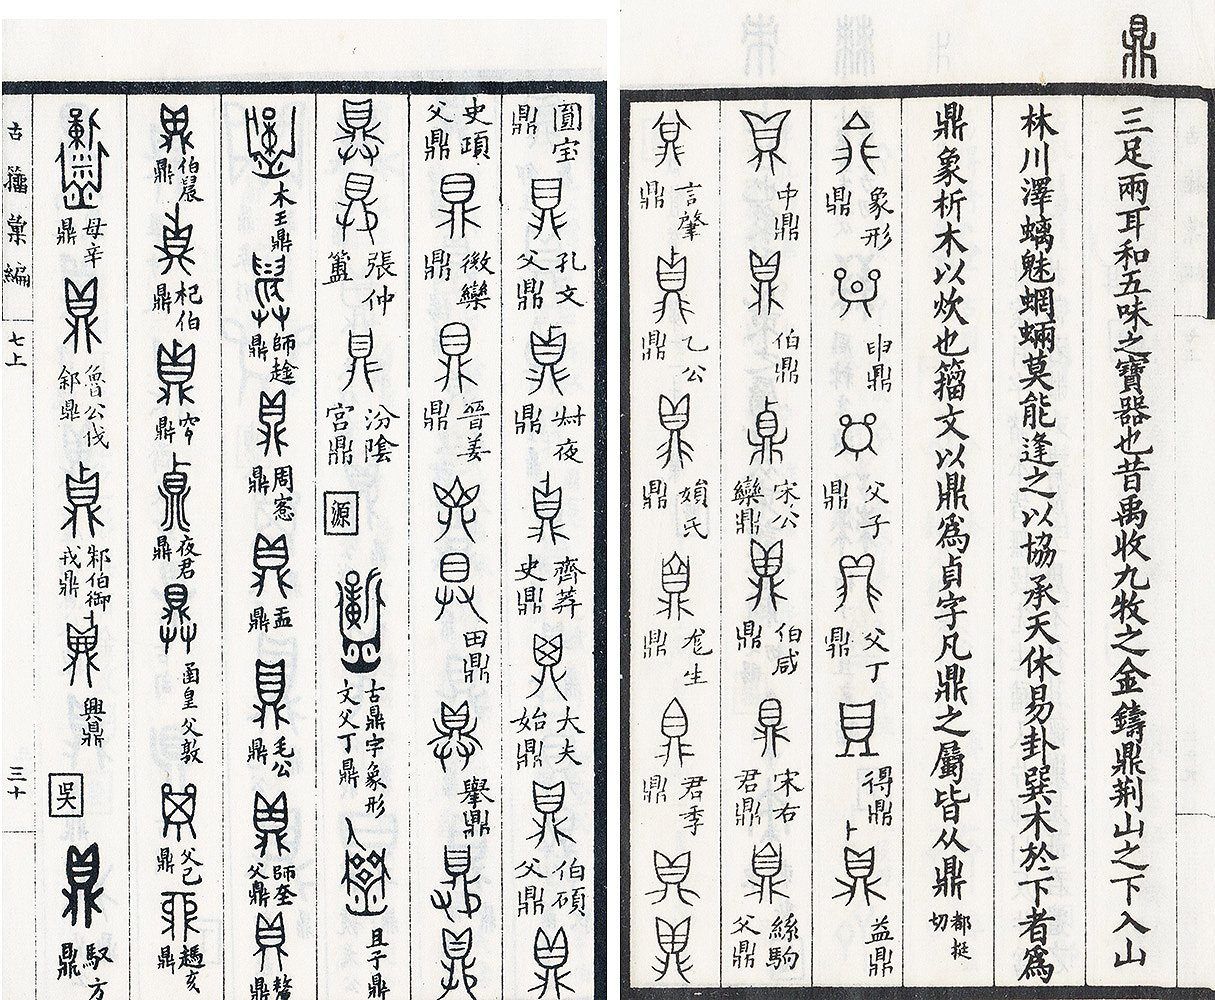 鼎
三足兩耳和五味之寶器也昔禹收九牧之金鑄鼎荆山之下入山
林川澤螭魅蝄蜽莫能逢之以協承天休易卦巽木於下者爲
鼎象析木以炊也籒文以鼎爲貞字凡鼎之屬皆从鼎 都挺切
象形鼎 申鼎 父子鼎 父丁鼎 得鼎 益鼎
中鼎 伯鼎 宋公欒鼎 伯咸鼎 宋右君鼎 絲駒父鼎
言肇鼎 乙公鼎 氏鼎 尨生鼎 君季鼎
圓宝鼎 孔文父鼎 夜鼎 齊莽史鼎 大夫始鼎 伯碩父鼎
史頙父鼎 微欒鼎 晉姜鼎 田鼎 舉鼎
張仲簠 汾陰宮鼎 源 古鼎字象形 文父丁鼎 且子鼎
木王鼎 師趛鼎 周窓鼎 盂鼎 毛公鼎 師奎父鼎 鼎
伯晨鼎 杞伯鼎 鼎 夜君鼎 圅皇父敦 父己鼎 亥鼎
母辛鼎 魯公伐鼎 邾伯御戎鼎 興鼎 吴 馭方鼎
古籒彙編 七上 三十